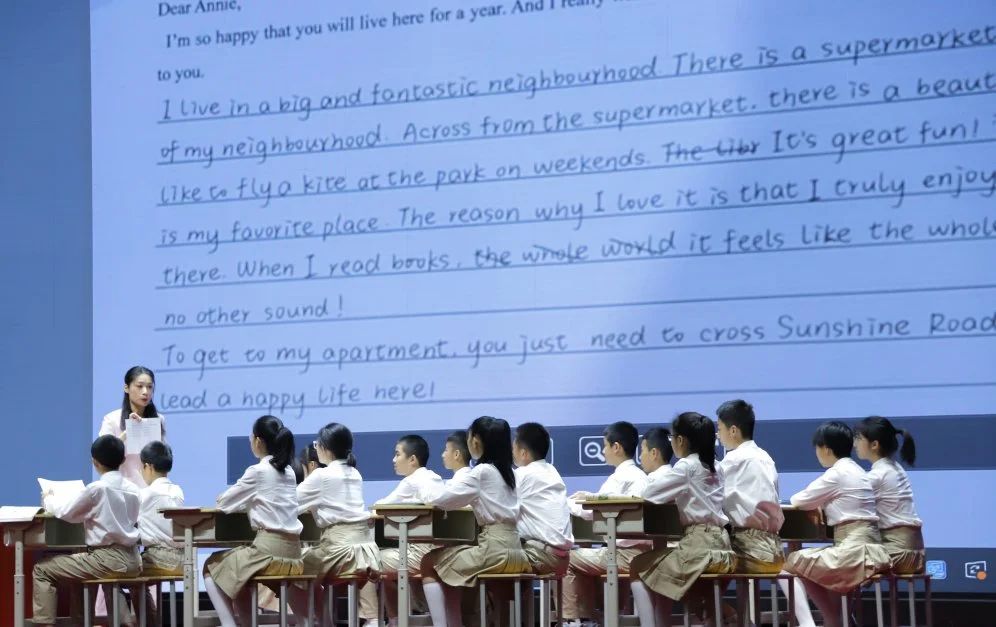 Dear Annie,
I'm so happy that you will live here for a year. And I really
to you.
I live in a big and fantastic neighbourhood. There is a supermarket
of my neighbourhood. Across from the supermarket, there is a beaut
like to fly a kite at the park on weekends. The libr It's great fun!
is my favorite place. The reason why I love it is that I truly enjoy
there. When I read books, the whole world it feels like the whole
no other sound!
To get to my apartment, you just need to cross Sunshine Road
lead a happy life here!